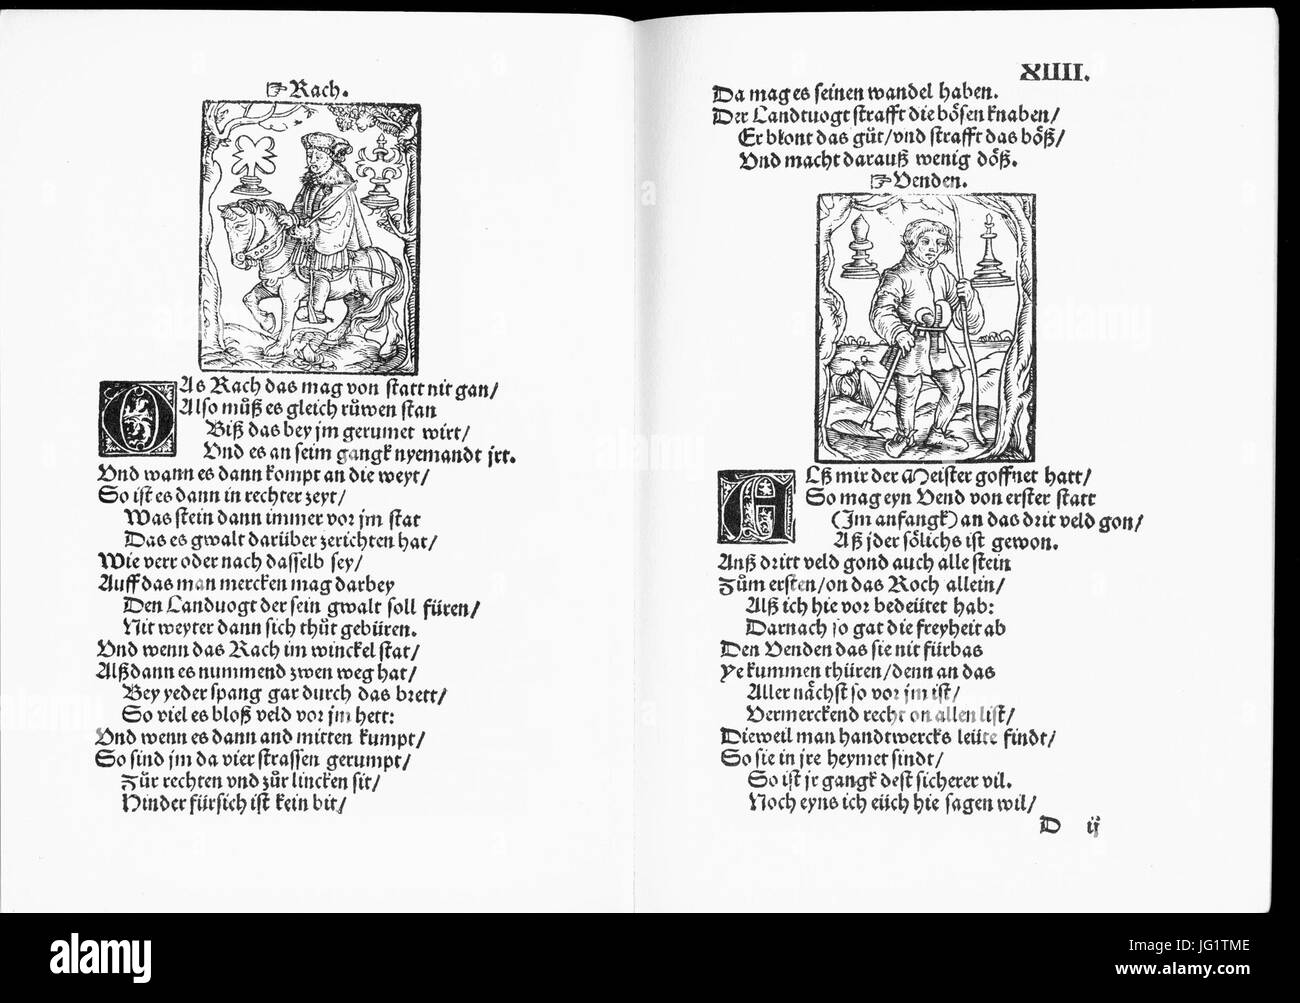 ☞Rach.
DAs Rach das mag von statt nit gan/
Also můß es gleich růwen stan
Biß das bey jm gerumet wirt/
Vnd es an seim gangk nyemandt jrt.
Vnd wann es dann kompt an die weyt/
So ist es dann in rechter zeyt/
Was stein dann immer vor jm stat
Das es gwalt darüber zerichten hat/
Wie verr oder nach dasselb sey/
Auff das man mercken mag darbey
Den Landuogt der sein gwalt soll füren/
Nit weyter dann sich thůt gebüren.
Vnd wenn das Rach im winckel stat/
Alßdann es nummend zwen weg hat/
Bey yeder spang gar durch das brett/
So viel es bloß veld vor jm hett:
Vnd wenn es dann and mitten kumpt/
So sind jm da vier strassen gerumpt/
Zůr rechten vnd zůr lincken sit/
Hinder fürsich ist kein bit/
XIIII.
Da mag es seinen wandel haben.
Der Landtuogt strafft die bösen knaben/
Er blont das güt/vnd strafft das böß/
Vnd macht darauß wenig döß.
☞Venden.
ALß mir der Meister goffnet hatt/
So mag eyn Vend von erster statt
(Im anfangk) an das drit veld gon/
Aß jder sölichs ist gewon.
Anß dritt veld gond auch alle stein
Zům ersten/on das Roch allein/
Alß ich hie vor bedeütet hab:
Darnach so gat die freyheit ab
Den Venden das sie nit fürbas
Ye kummen thüren/denn an das
Aller nächst so vor jm ist/
Vermerckend recht on allen list/
Dieweil man handtwercks leüte findt/
So sie in jre heymet sindt/
So ist jr gangk dest sicherer vil.
Noch eyns ich eüch hie sagen wil/
D ij
alamy
Image ID: JG1TME
www.alamy.com